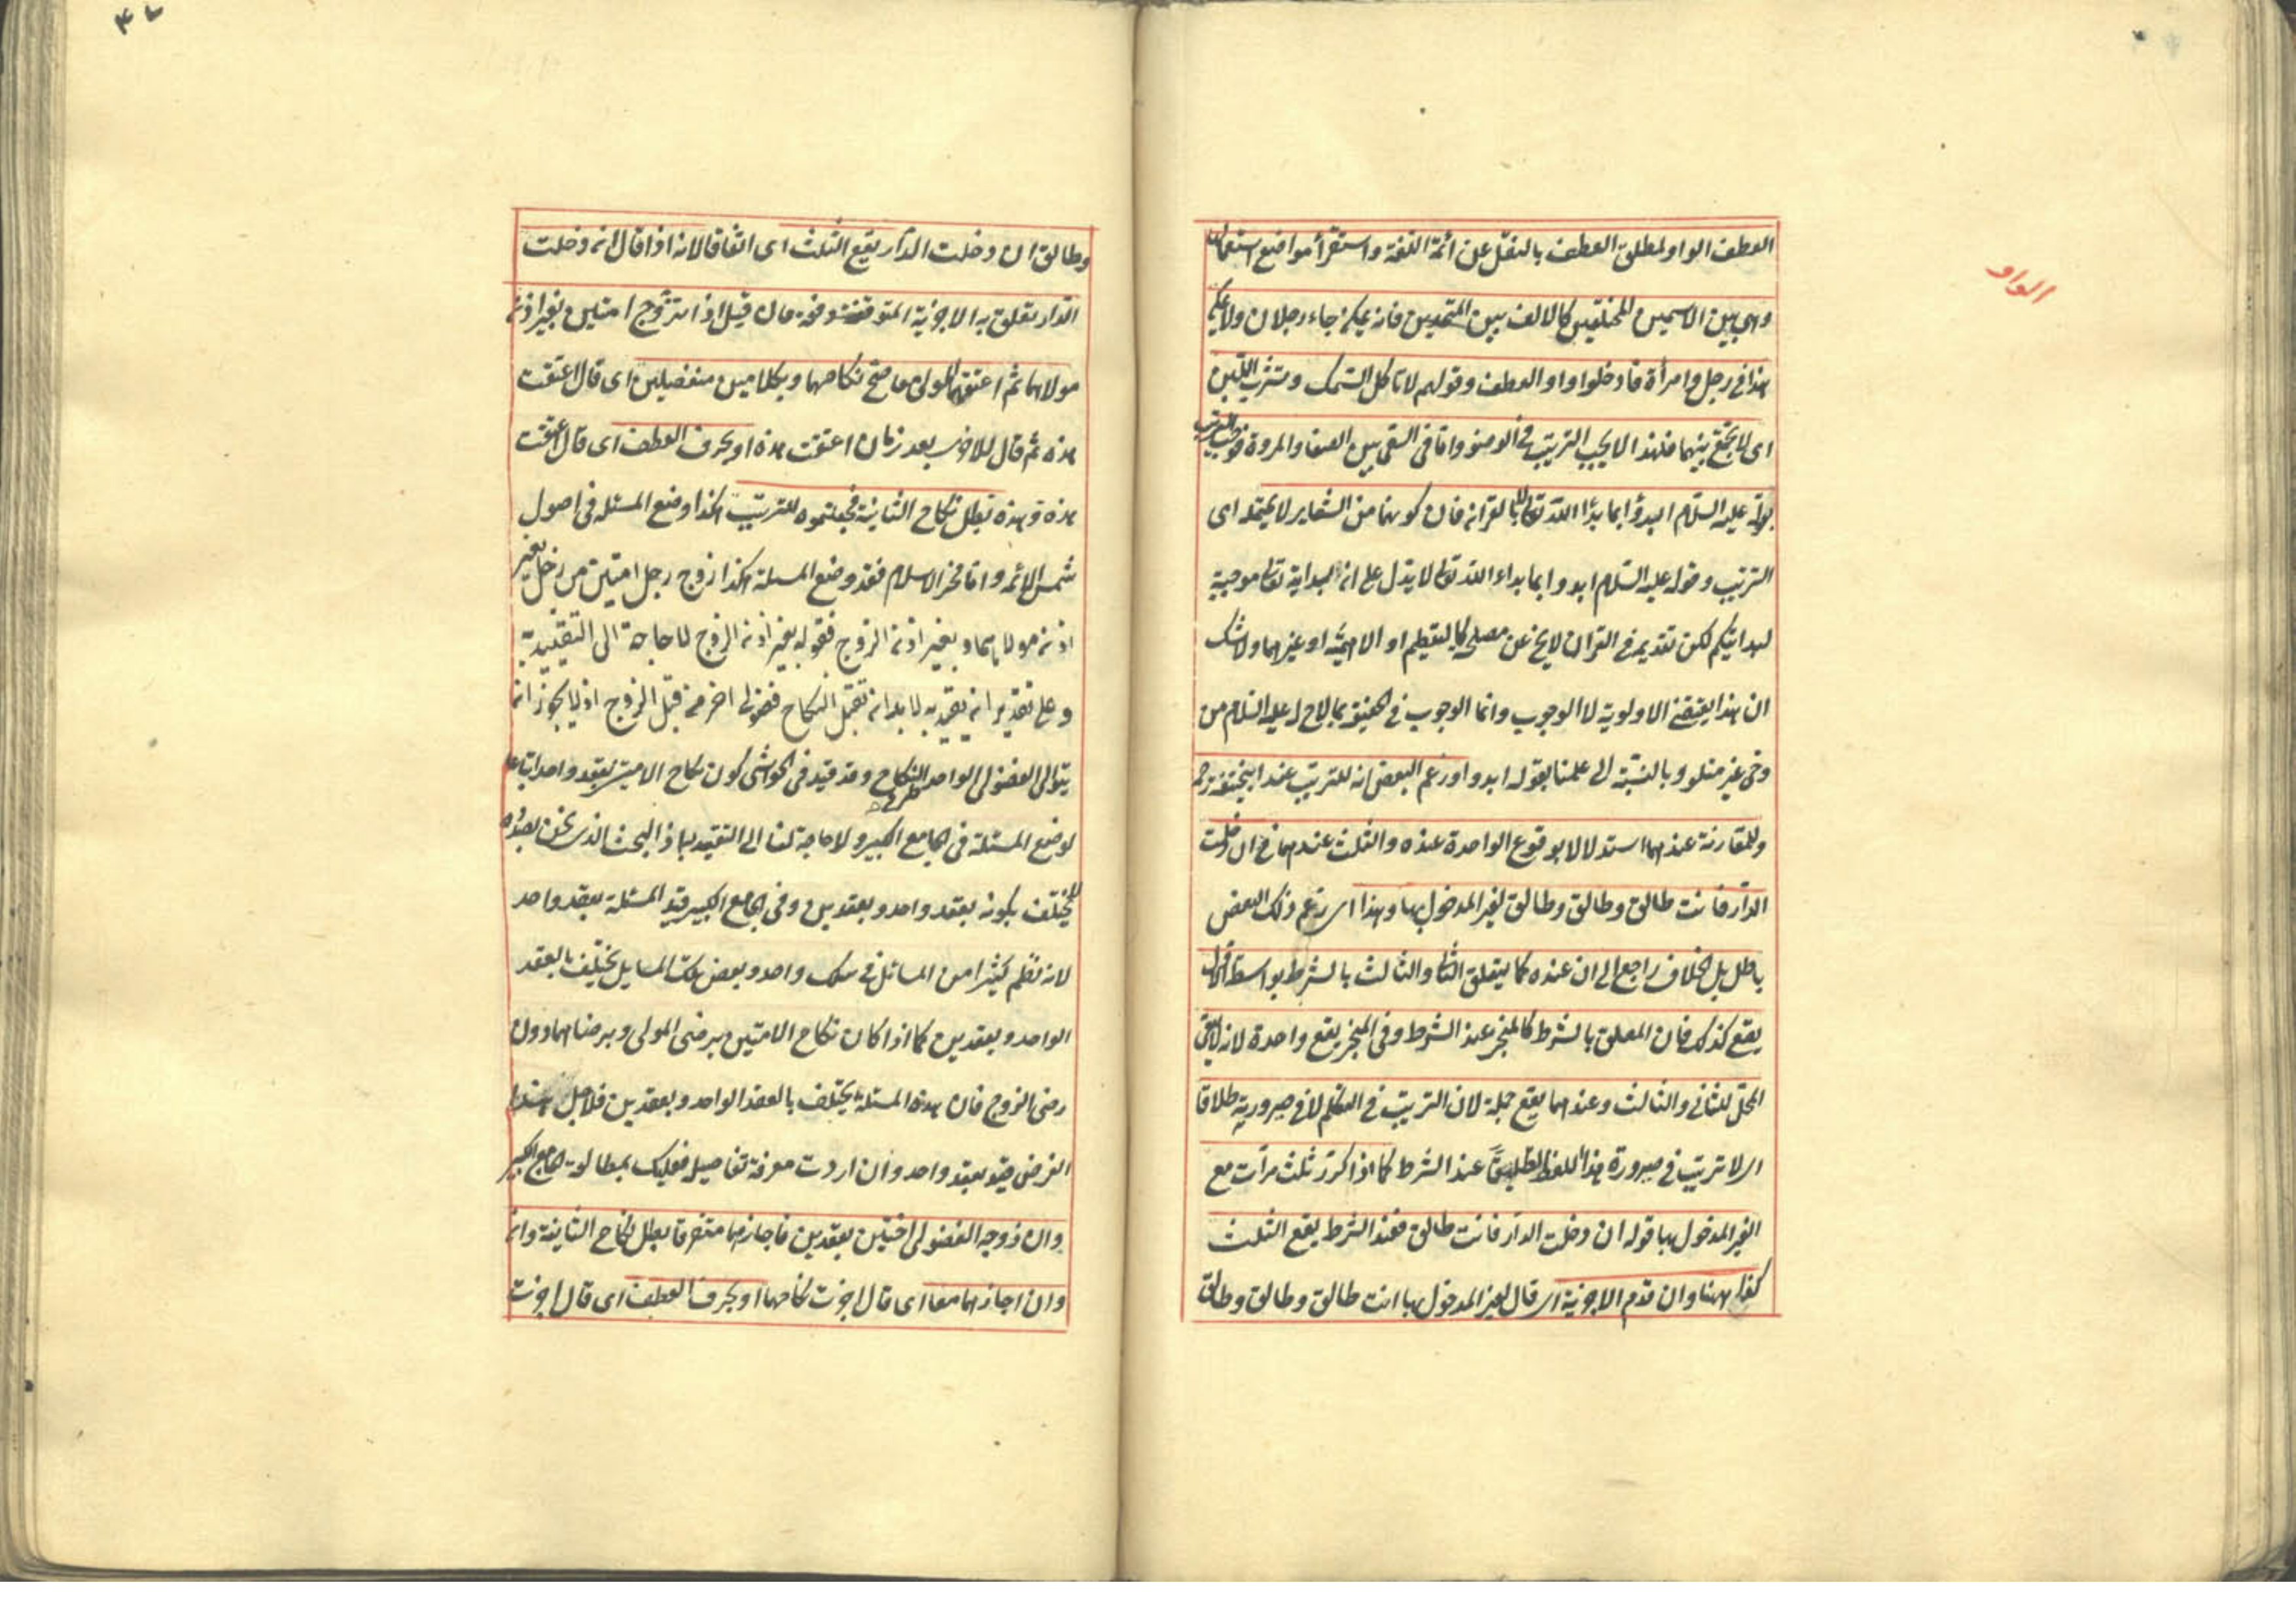 الواو
العطف الواو لمطلق العطف بالنقل عن ائمة اللغة واستقرأ مواضع استعمالها
وهي بين الاسمين المختلفين كالالف بين المتحدين فانه يمكن جاء رجلان ولا يمكن
هذا في رجل وامرأة فادخلوا واو العطف وقولهم لا تاكل السمك وتشرب اللبن
اى لا تجمع بينهما فلهذا لا يجب الترتيب في الوضوء واما في السعى بين الصفا والمروة فوجب الترتيب
بقوله عليه السلام ابدؤا بما بدأ الله تعالى لا بالقران فان كونهما من الشعاير لا يحتمله اى
الترتيب وقوله عليه السلام ابدوا بما بداء الله تعالى لا يدل على ان بداية تعالى موجبة
لبدايتكم لكن تقديمه في القران لا يخ عن مصلحة كالتعظيم او الاهمية او غيرهما ولا شك
ان هذا يقتضى الاولوية لا الوجوب وانما الوجوب في الحقيقة بما لاح له عليه السلام من
وحى غير متلو وبالنسبة الى علمنا بقوله ابدوا وزعم البعض انه للترتيب عند ابيحنيفة رحمه
وللمقارنة عندهما استدلالا بوقوع الواحدة عنده والثلث عندهما في ان دخلت
الدار فانت طالق وطالق وطالق لغير المدخول بها وهذا اى زعم ذلك البعض
باطل بل الخلاف راجع الى ان عنده كما يتعلق الثانى والثالث بالشرط بواسطة الاول
يقع كذلك فان المعلق بالشرط كالمنجز عند الشرط وفى المنجز يقع واحدة لانه لا يبقى
المحل للثانى والثالث وعندهما يقع جملة لان الترتيب في التكلم لا في صيرورته طلاقا
اى لا ترتيب في صيرورة هذا اللفظ تطليقا عند الشرط كما اذا كرر ثلث مرات مع
الغير المدخول بها قوله ان دخلت الدار فانت طالق فعند الشرط يقع الثلث
كذا ههنا وان قدم الاجزية اى قال لغير المدخول بها انت طالق وطالق وطالق
وطالق ان دخلت الدار يقع الثلث اى اتفاقا لانه اذا قال ان دخلت
الدار تعلق به الاجزية المتوقفة دفعة فان قيل اذا تزوج امتين بغير اذن
مولاهما ثم اعتقهما المولى معا صح نكاحهما وبكلامين منفصلين اى قال اعتقت
هذه ثم قال للاخرى بعد زمان اعتقت هذه او بحرف العطف اى قال اعتقت
هذه وهذه تبطل نكاح الثانية فجعلتموه للترتيب هكذا وضع المسئلة في اصول
شمس الائمه واما فخر الاسلام فقد وضع المسئلة هكذا زوج رجل امتين من رجل بغير
اذن مولاهما وبغير اذن الزوج فقوله بغير اذن الزوج لا حاجة الى التقييد به
وعلى تقدير ان يقيد به لا بد ان تقبل النكاح فضولى اخر من قبل الزوج اذ لا يجوز ان
يتولى الفضولى الواحد طرفى النكاح وقد قيد في الحواشى كون نكاح الامتين بعقد واحد اتباعا
لوضع المسئلة في الجامع الكبير ولا حاجة لنا الى التقييد به اذ البحث الذى نحن بصدده
لا يختلف بكونه بعقد واحد وبعقدين وفى الجامع الكبير قيد المسئلة بعقد واحد
لانه نظم كثيرا من المسائل في سلك واحد وبعض تلك المسايل يختلف بالعقد
الواحد وبعقدين كما اذا كان نكاح الامتين برضى المولى وبرضاهما دون
رضى الزوج فان هذه المسئلة يختلف بالعقد الواحد وبعقدين فلاجل هذا
الغرض قيد بعقد واحد وان اردت معرفة تفاصيله فعليك بمطالعة الجامع الكبير
وان زوجه الفضولى اختين بعقدين فاجازهما متفرقا بطل نكاح الثانية وان
وان اجازهما معا اى قال اجزت نكاحهما او بحرف العطف اى قال اجزت